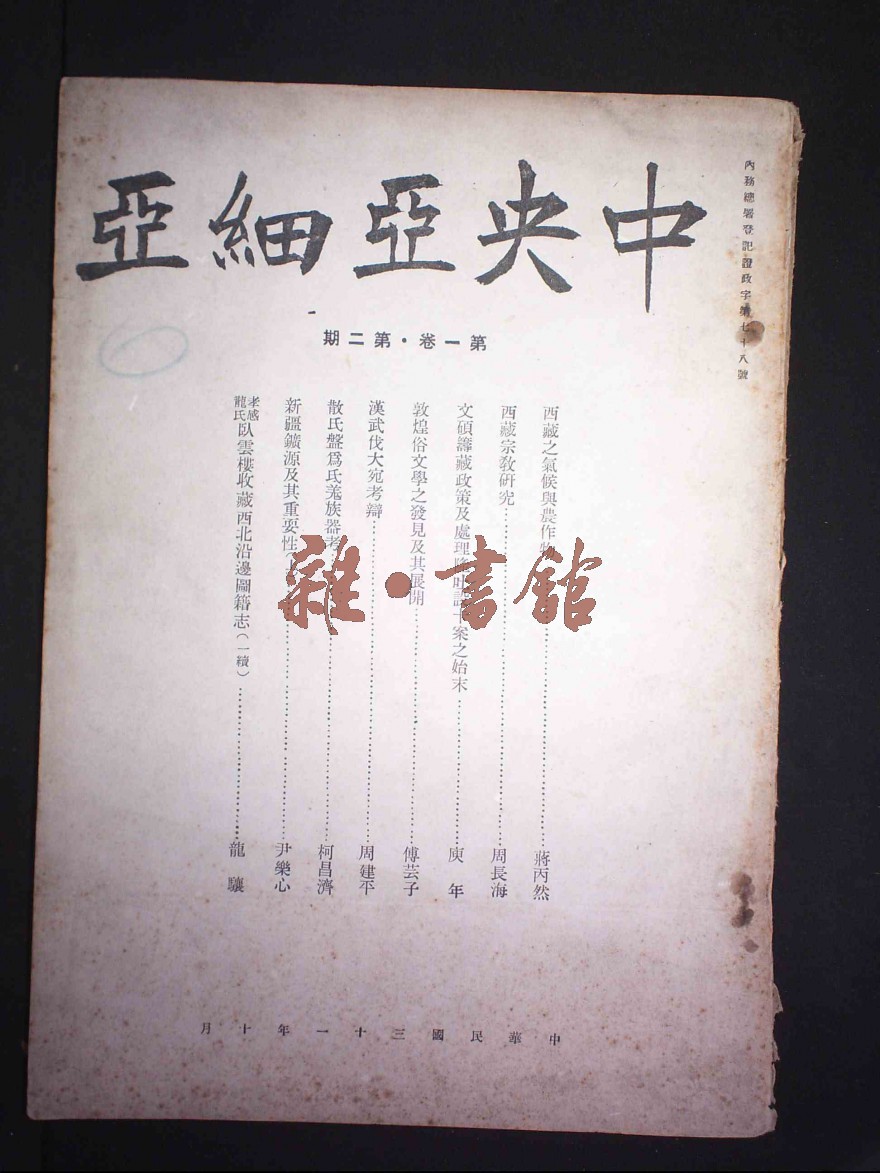 內務總署登記證政字第七十八號
中央亞細亞
第一卷・第二期
西藏之氣候與農作物 蔣丙然
西藏宗教研究 周長海
文碩籌藏政策及處理隆吐設卡案之始末 庾年
敦煌俗文學之發見及其展開 傅芸子
漢武伐大宛考辯 周建平
散氏盤爲氐羌族器考 柯昌濟
新疆鑛源及其重要性 尹樂心
孝感龍氏臥雲樓收藏西北沿邊圖籍志(一續) 龍驤
雜・書館
中華民國三十一年十月